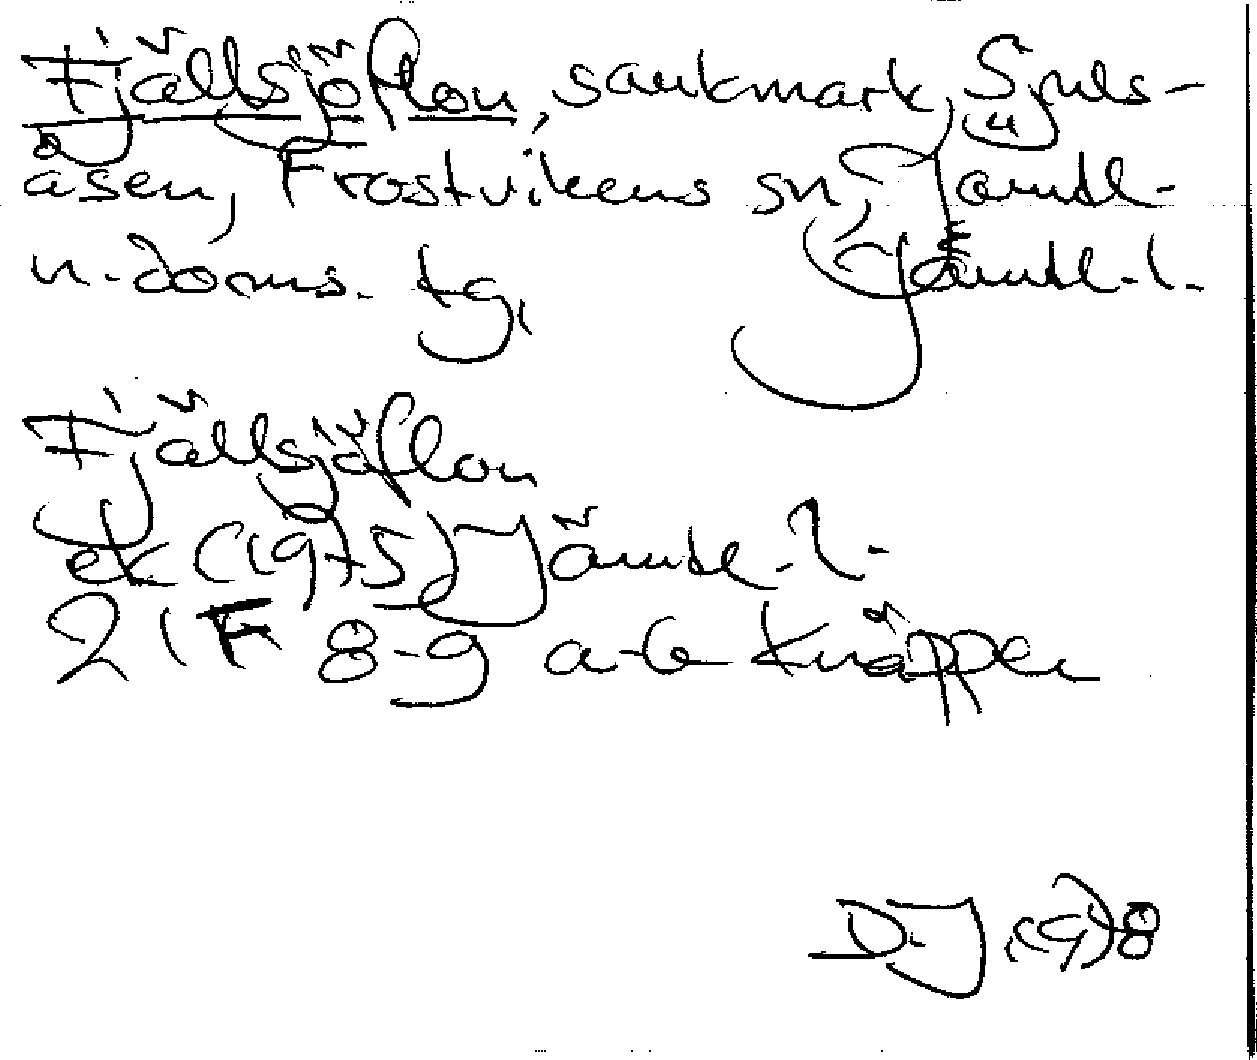 Fjällsjöflon, sankmark, Sjuls-
åsen, Frostvikens sn, Jämtl-
n. doms. tg, Jämtl. l.
Fjällsjöflon
ek (1975) Jämtl. l.
21F 8-9 a-b Knäppen
D.J 1978